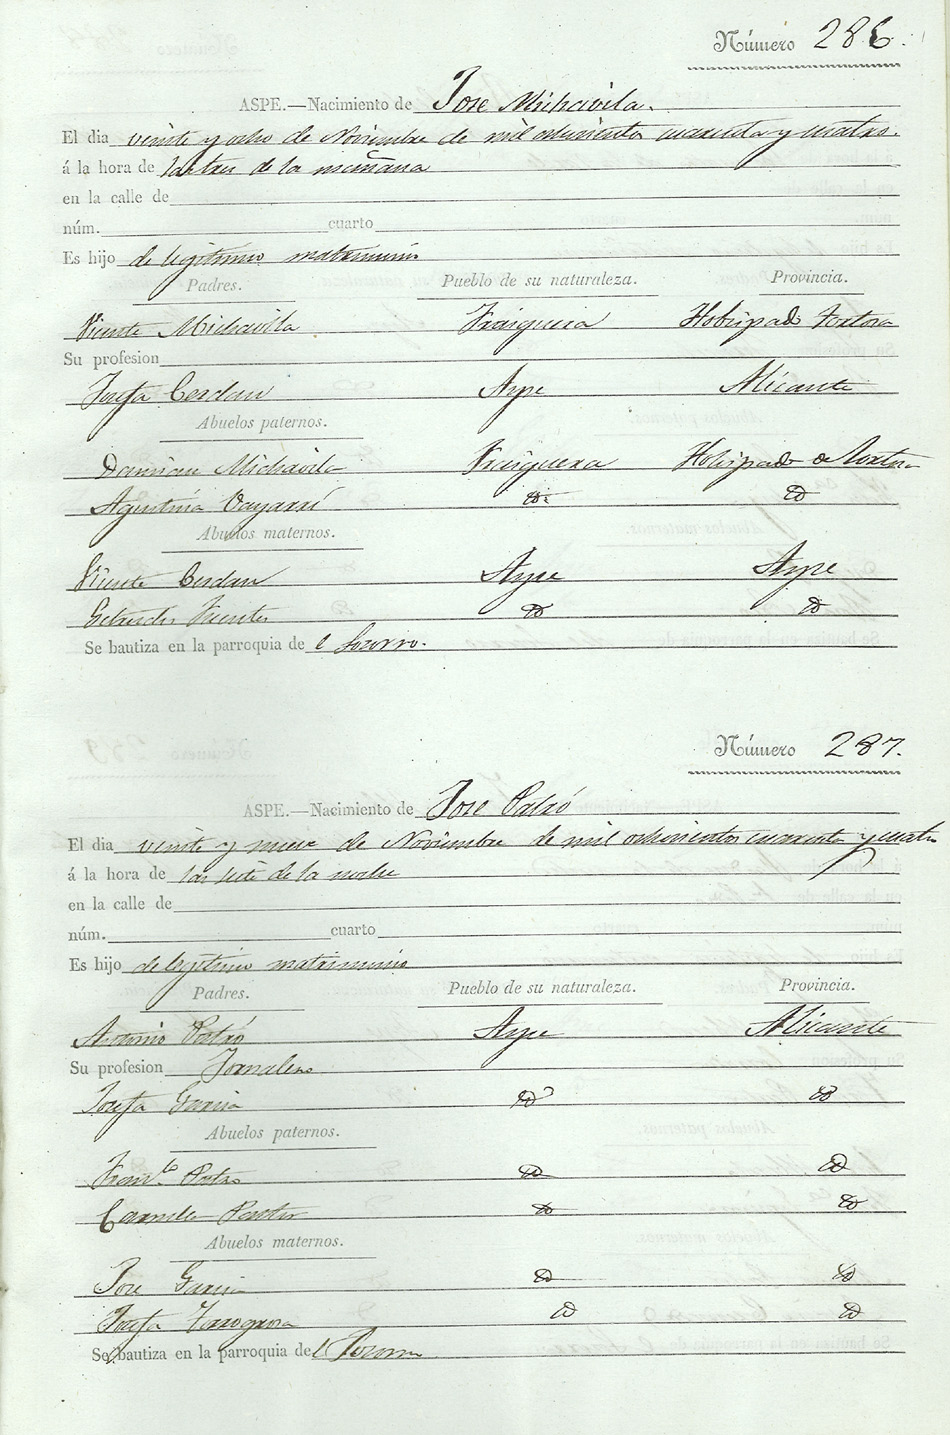 Número 286.
ASPE.—Nacimiento de Jose Michavila.
El dia veinte y ocho de Noviembre de mil ochociento cuarenta y cuatro.
á la hora de las tres de la mañana
en la calle de
núm. cuarto
Es hijo de legitimo matrimonio
Padres. Pueblo de su naturaleza. Provincia.
Vicente Michavila Traiguera Hobispado Tortosa
Su profesion
Josefa Cerdan Aspe Alicante
Abuelos paternos.
Damian Michavila Traiguera Hobispado de Tortosa
Agustina Id Id
Abuelos maternos.
Vicente Cerdan Aspe Aspe
Getrudes Id Id
Se bautiza en la parroquia de l Socorro.
Número 287.
ASPE.—Nacimiento de Jose Patró
El dia veinte y nueve de Noviembre de mil ochocientos cuarenta y cuatro
á la hora de las siete de la noche
en la calle de
núm. cuarto
Es hijo de legitimo matrimonio
Padres. Pueblo de su naturaleza. Provincia.
Antonio Patró Aspe Alicante
Su profesion Jornalero
Josefa Garcia Id Id
Abuelos paternos.
Franco. Patro Id Id
Carmela Pastor Id Id
Abuelos maternos.
Jose Garcia Id Id
Josefa Id Id
Se bautiza en la parroquia del Socorro